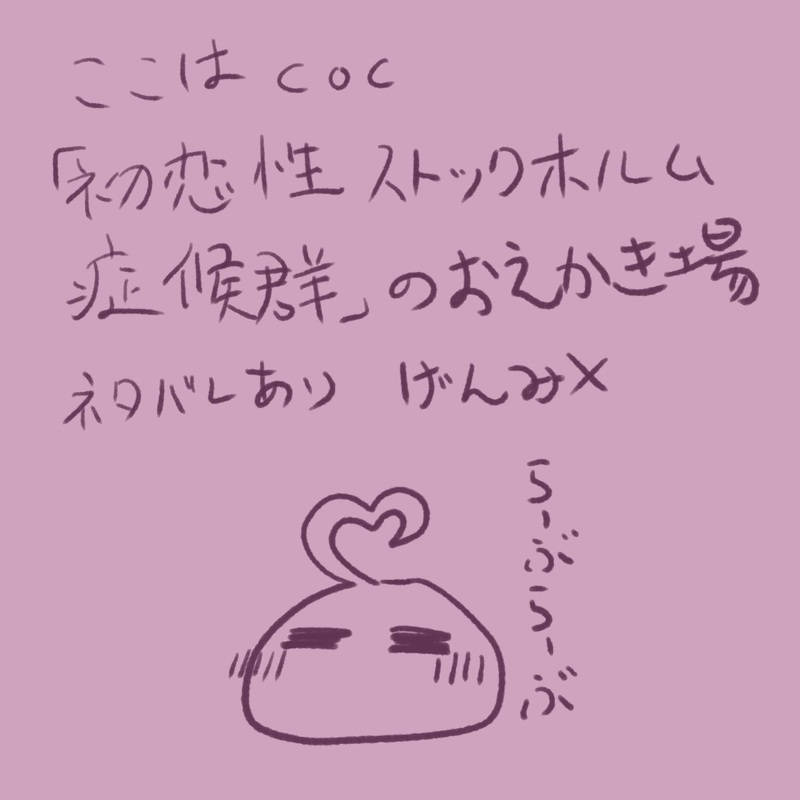 ここは coc
「初恋性ストックホルム
症候群」のおえかき場
ネタバレあり げんみ×
らーぶらーぶ